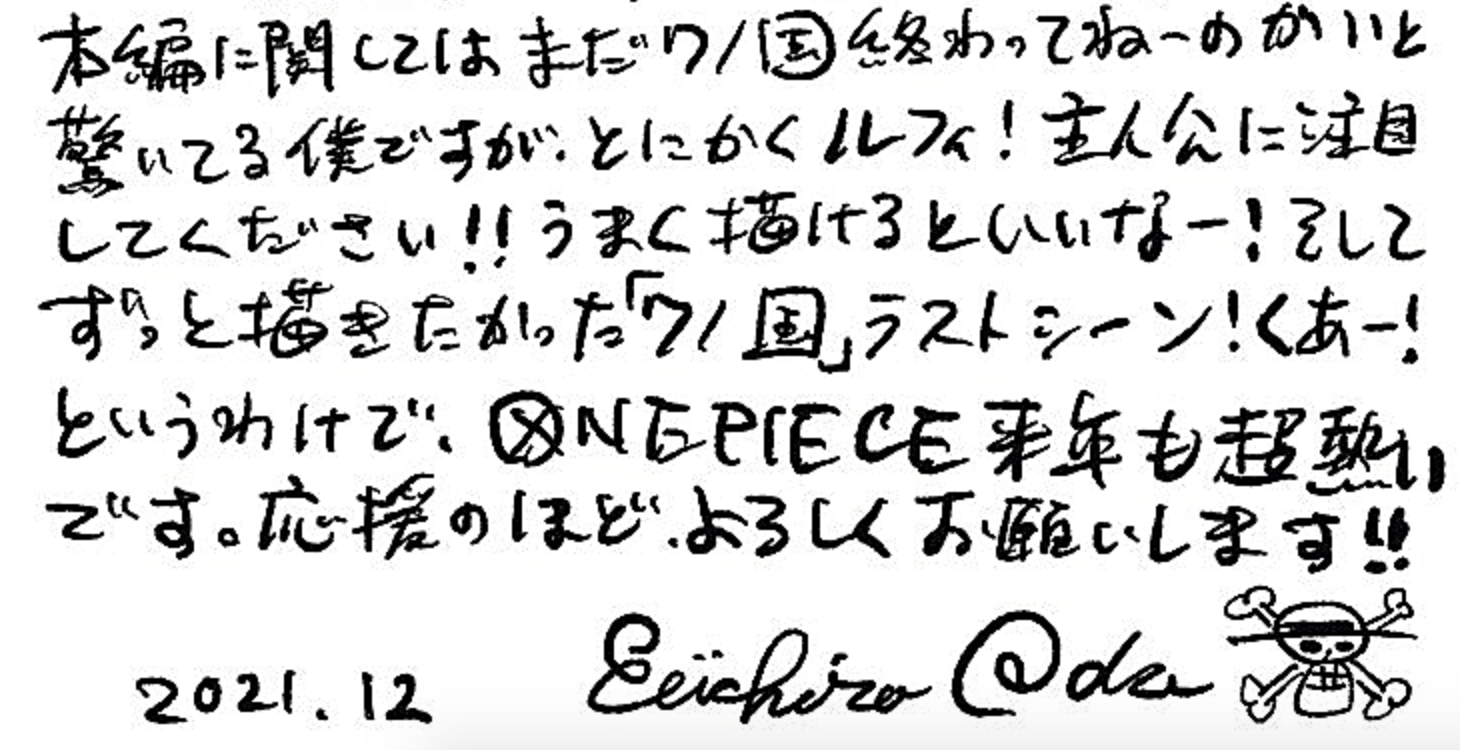 本編に関してはまだワノ国終わってねーのかいと
驚いてる僕ですが、とにかくルフィ!主人公に注目
してください!!うまく描けるといいなー!そして
ずっと描きたかった「ワノ国」ラストシーン!くあー!
というわけで、ONE PIECE来年も超熱い
です。応援のほど、よろしくお願いします!!
2021.12 Eiichiro Oda